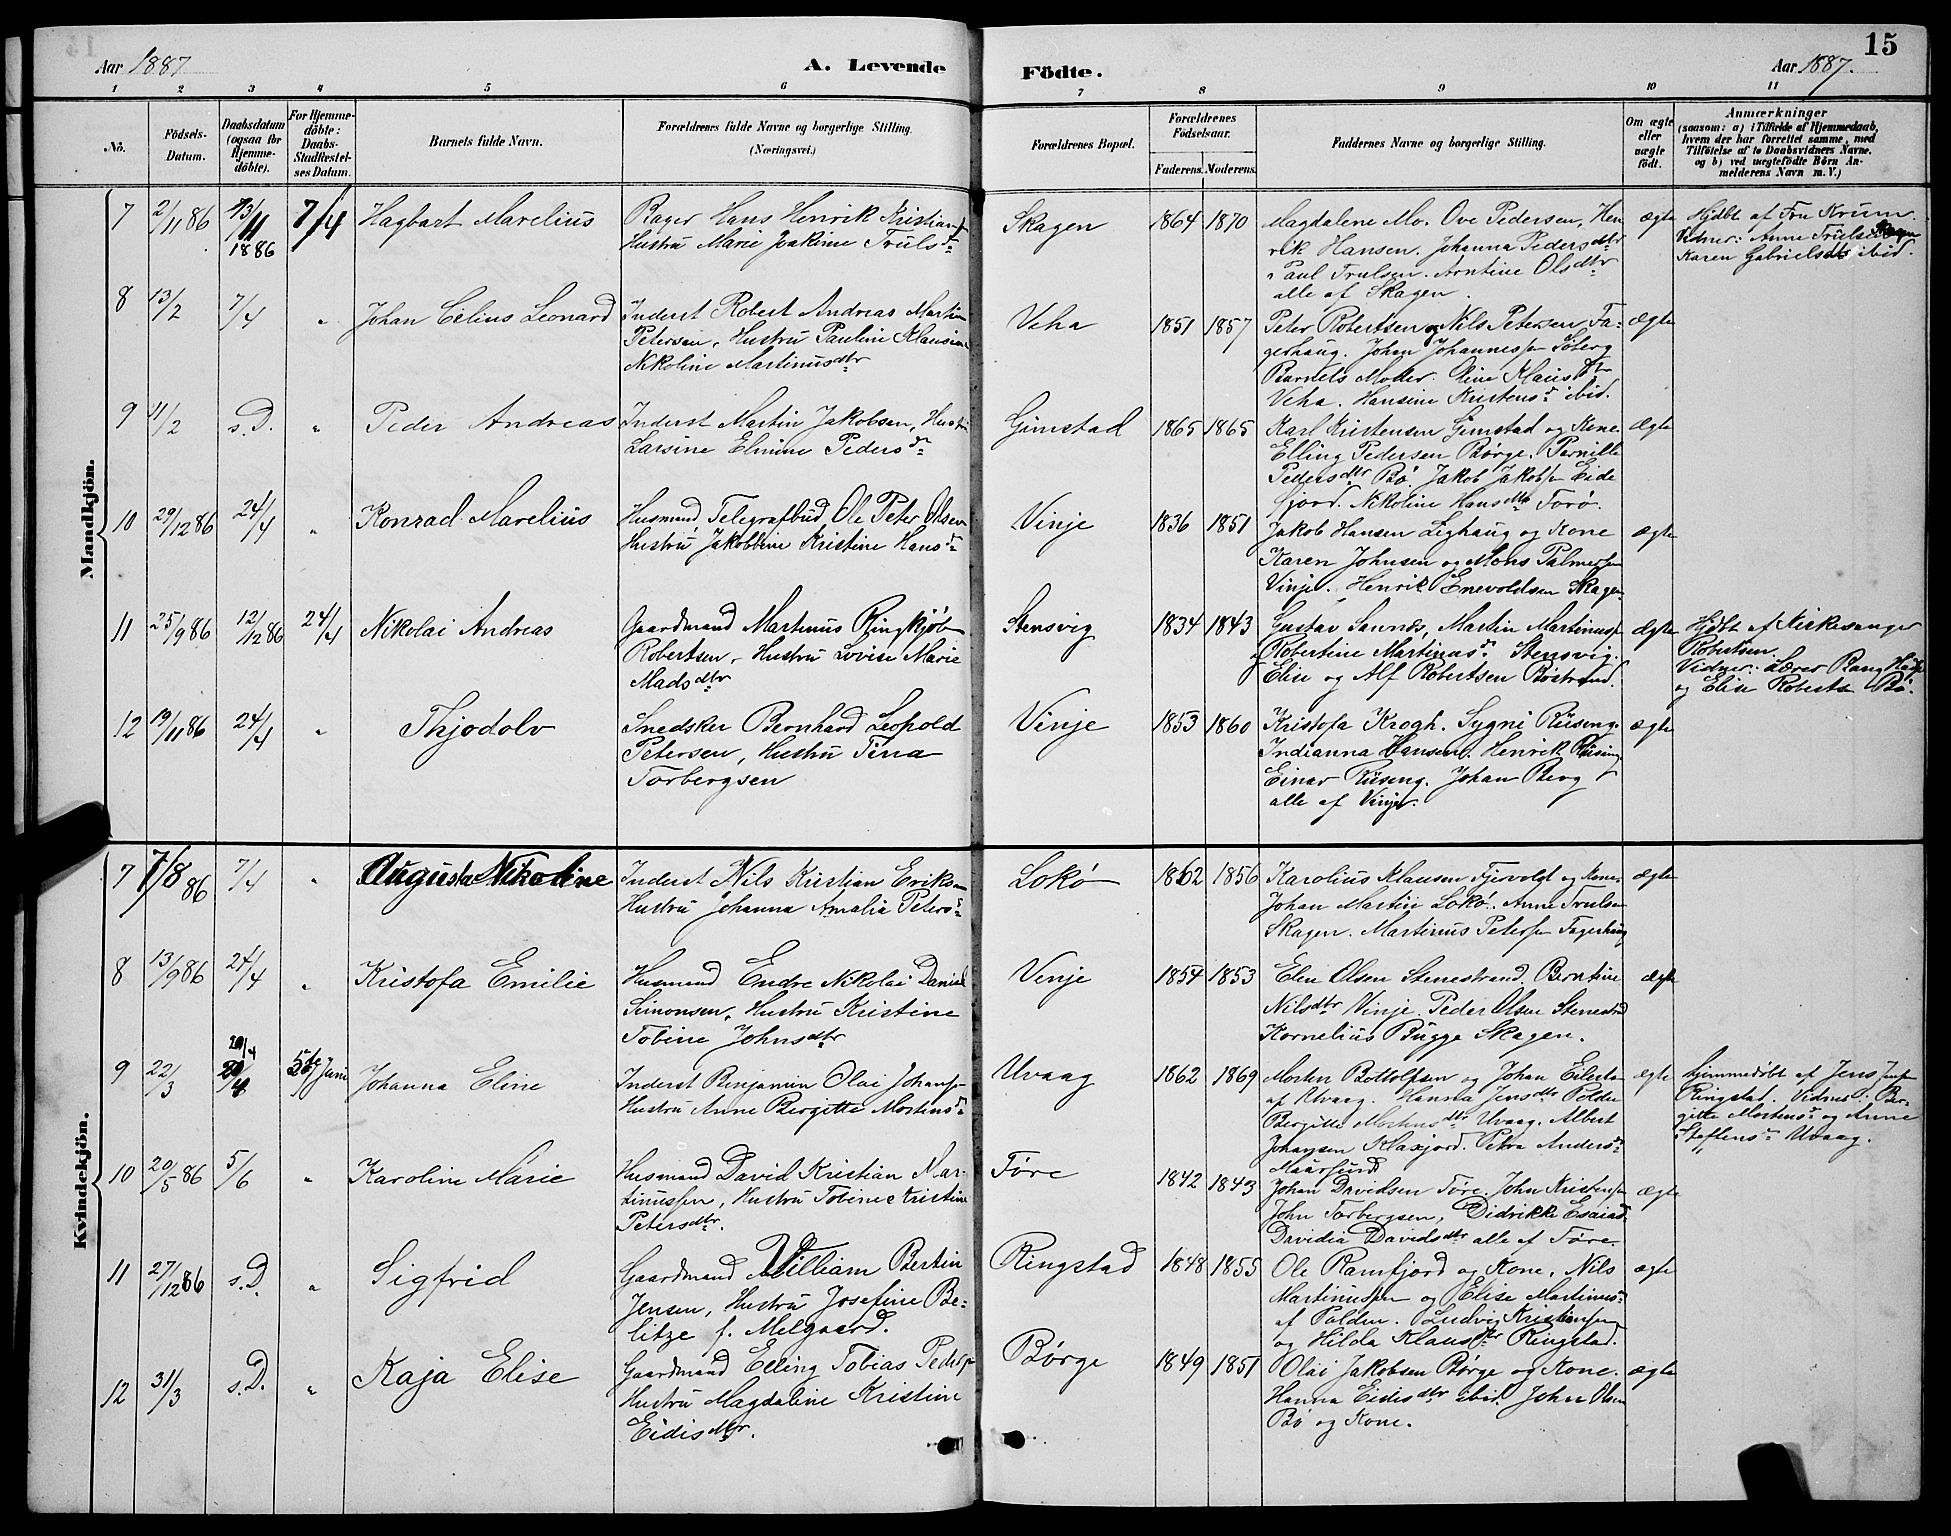 Aar 1887
A. Levende
Födte.
Aar 1887.
15
1 2 3 4 5 6 7 8 9 10 11
No.
Födsels-Datum.
Daabsdatum (ogsaa for Hjemme-döbte).
For Hjemme-döbte: Daabs-Stadfæstel-ses Datum.
Barnets fulde Navn.
Forældrenes fulde Navne og borgerlige Stilling.
(Næringsvei.)
Forældrenes Bopæl.
Forældrenes Födselsaar.
Faderens. Moderens.
Faddernes Navne og borgerlige Stilling.
Om ægte eller uægte födt.
Anmærkninger
(saasom: a) i Tilfælde af Hjemmedaab,
hvem der har forrettet samme, med
Tilföielse af to Daabsvidners Navne,
og b) ved uægtefödte Börn An-
melderens Navn m. V.)
Mandkjön.
7 2/11 86 13/11 1886 7/4 Hagbart Marelius
Bager Hans Henrik Kristians
Hustru Marie Joakime Trulsdr
Skagen 1864 1870
Magdalene Mo. Ove Pedersen, Hen
rik Hansen. Johanna Pedersdtr
Paul Trulsen. Arntine Olsdtr
alle af Skagen.
ægte
Hjdbt af Fru Krum.
Vidner: Anne Trulsen Skagen
Karen Gabrielsdtr ibid.
8 13/2 7/4 " Johan Celius Leonard
Inderst Robert Andreas Martin
Petersen, Hustru Pauline Klausine
Nikoline Martinusdtr
Veha 1851 1857
Peter Robertsen og Nils Petersen Fa-
gerhaug. Johan Johannessen Söberg
Barnets Moder. Oline Klausdtr
Veha. Hansine Kristensd ibid.
ægte
9 4/2 s.D. " Peder Andreas
Inderst Martin Jakobsen, Hustru
Larsine Elmine Pedersdr
Gimstad 1865 1865
Karl Kristensen Gimstad og Kone
Elling Pedersen Börge. Pernille
Pedersdtr Bö. Jakob Jakobsen Eide
fjord. Nikoline Hansdtr Forö.
ægte
10 29/12 86 24/4 " Konrad Marelius
Husmand, Telegrafbud Ole Peter Olsen
Hustru Jakobbine Kristine Hansdr
Vinje 1836 1851
Jakob Hansen Lighaug og Kone
Karen Johnsen og Mons Palmesen
Vinje. Henrik Enevoldsen Skagen
ægte
11 25/9 86 12/12 86 24/4 Nikolai Andreas
Gaardmand Martinus Ringkjöb
Robertsen, Hustru Lovise Marie
Madsdtr
Stensvig 1834 1843
Gustav Saunds, Martin Martinussen
Robertine Martinusdr Stensvig.
Elise og Alf Robertsen Böstrand.
ægte
Hjdbt af Kirkesanger
Robertsen.
Vidner: Lærer Bang
og Elise Roberts Bö.
12 19/11 86 24/4 " Thjodolv
Snedsker Bernhard Leopold
Petersen, Hustru Tina
Torbergsen
Vinje 1853 1860
Kristofa Krogh. Sygni Rüsing
Indianna Hansen. Henrik Rüsing
Einar Rüseng. Johan Berg
alle af Vinje.
ægte
Kvindekjön.
7 7/8 86 7/4 " Augusta Nikoline
Inderst Nils Kristian Eriksen
Hustru Johanna Amalia Petersdr
Lokö 1862 1856
Karolius Klausen Fjervoldt og Kone
Johan Martin Lokö. Anne Trulsen
Skagen. Martinus Petersen Fagerhaug
ægte
8 13/9 86 24/4 " Kristofa Emilie
Husmand Endre Nikolai Daniel
Simonsen, Hustru Kristine
Tobine Johnsdtr
Vinje 1854 1853
Elen Olsen Stenestrand. Berntine
Nilsdtr Vinje. Peder Olsen Stenestrd
Kornelius Bugge Skagen.
ægte
9 22/3 29/4 5te Juni Johanna Eline
Inderst Benjamin Olai Johans
Hustru Anne Bergitte Mortensdr
Uvaag 1862 1869
Morten Bottolfsen og Johan
af Uvaag. Hansea Jensdtr Polder
Bergitte Mortensdtr Uvaag. Albert
Johansen Klaxjord. Petra Andersdr
Maarsund
ægte
hjemmedöbt af Jens Jens
Ringstad. Vidner: Ber-
gitte Mortensd og Anne
Steffensdr Uvaag.
10 20/5 86 5/6 " Karoline Marie
Husmand David Kristian Mar-
tinussen, Hustru Tobine Kristine
Petersdtr.
Före 1842 1843
Johan Davidsen Före. John Kristensen
John Torbergsen, Didrikke Esaiasd
Davidia Davidsdtr alle af Före.
ægte
11 27/12 86 s.D. " Sigfrid
Gaardmand William Bertin
Jensen, Hustru Josefine Be-
litze f. Melgaard.
Ringstad 1848 1855
Ole Ramfjord og Kone, Nils
Martinussen og Elise Martinusdr
af Polden. Ludvig Kristensen
og Hilda Klausdtr Ringstad.
ægte
12 31/3 s.D. " Kaja Elise
Gaardmand Elling Tobias Peders
Hustru Magdaline Kristine
Eidisdtr.
Börge 1849 1851
Olai Jakobsen Börge og Kone.
Hanna Eidisdtr ibid. John Olsen
Bö og Kone.
ægte